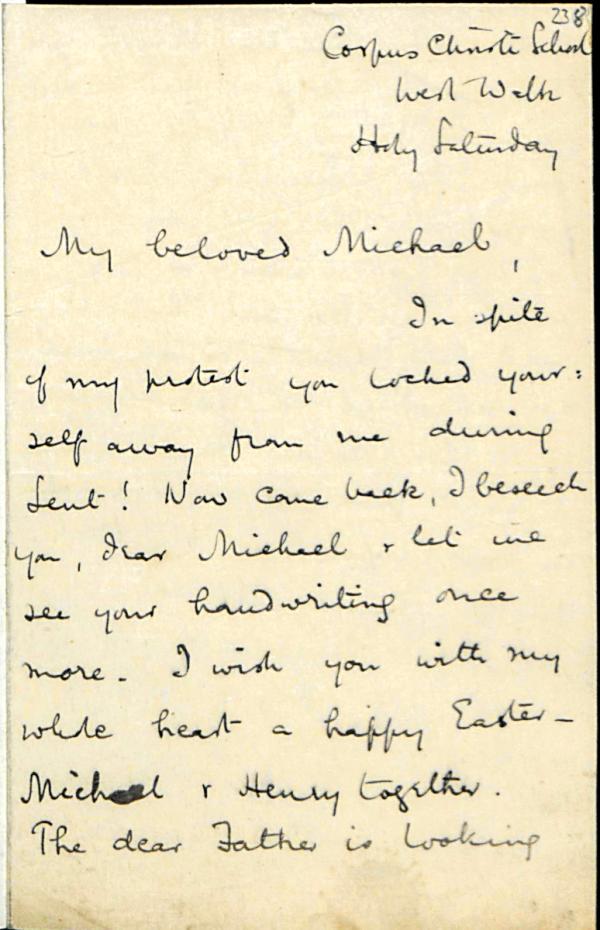 238
Corpus Christi School
West Walk
Holy Saturday
My beloved Michael,
In spite
of my protest you locked your=
self away from me during
Lent! Now come back, I beseech
you, dear Michael & let me
see your handwriting once
more. I wish you with my
whole heart a happy Easter –
Michael & Henry together.
The dear Father is looking